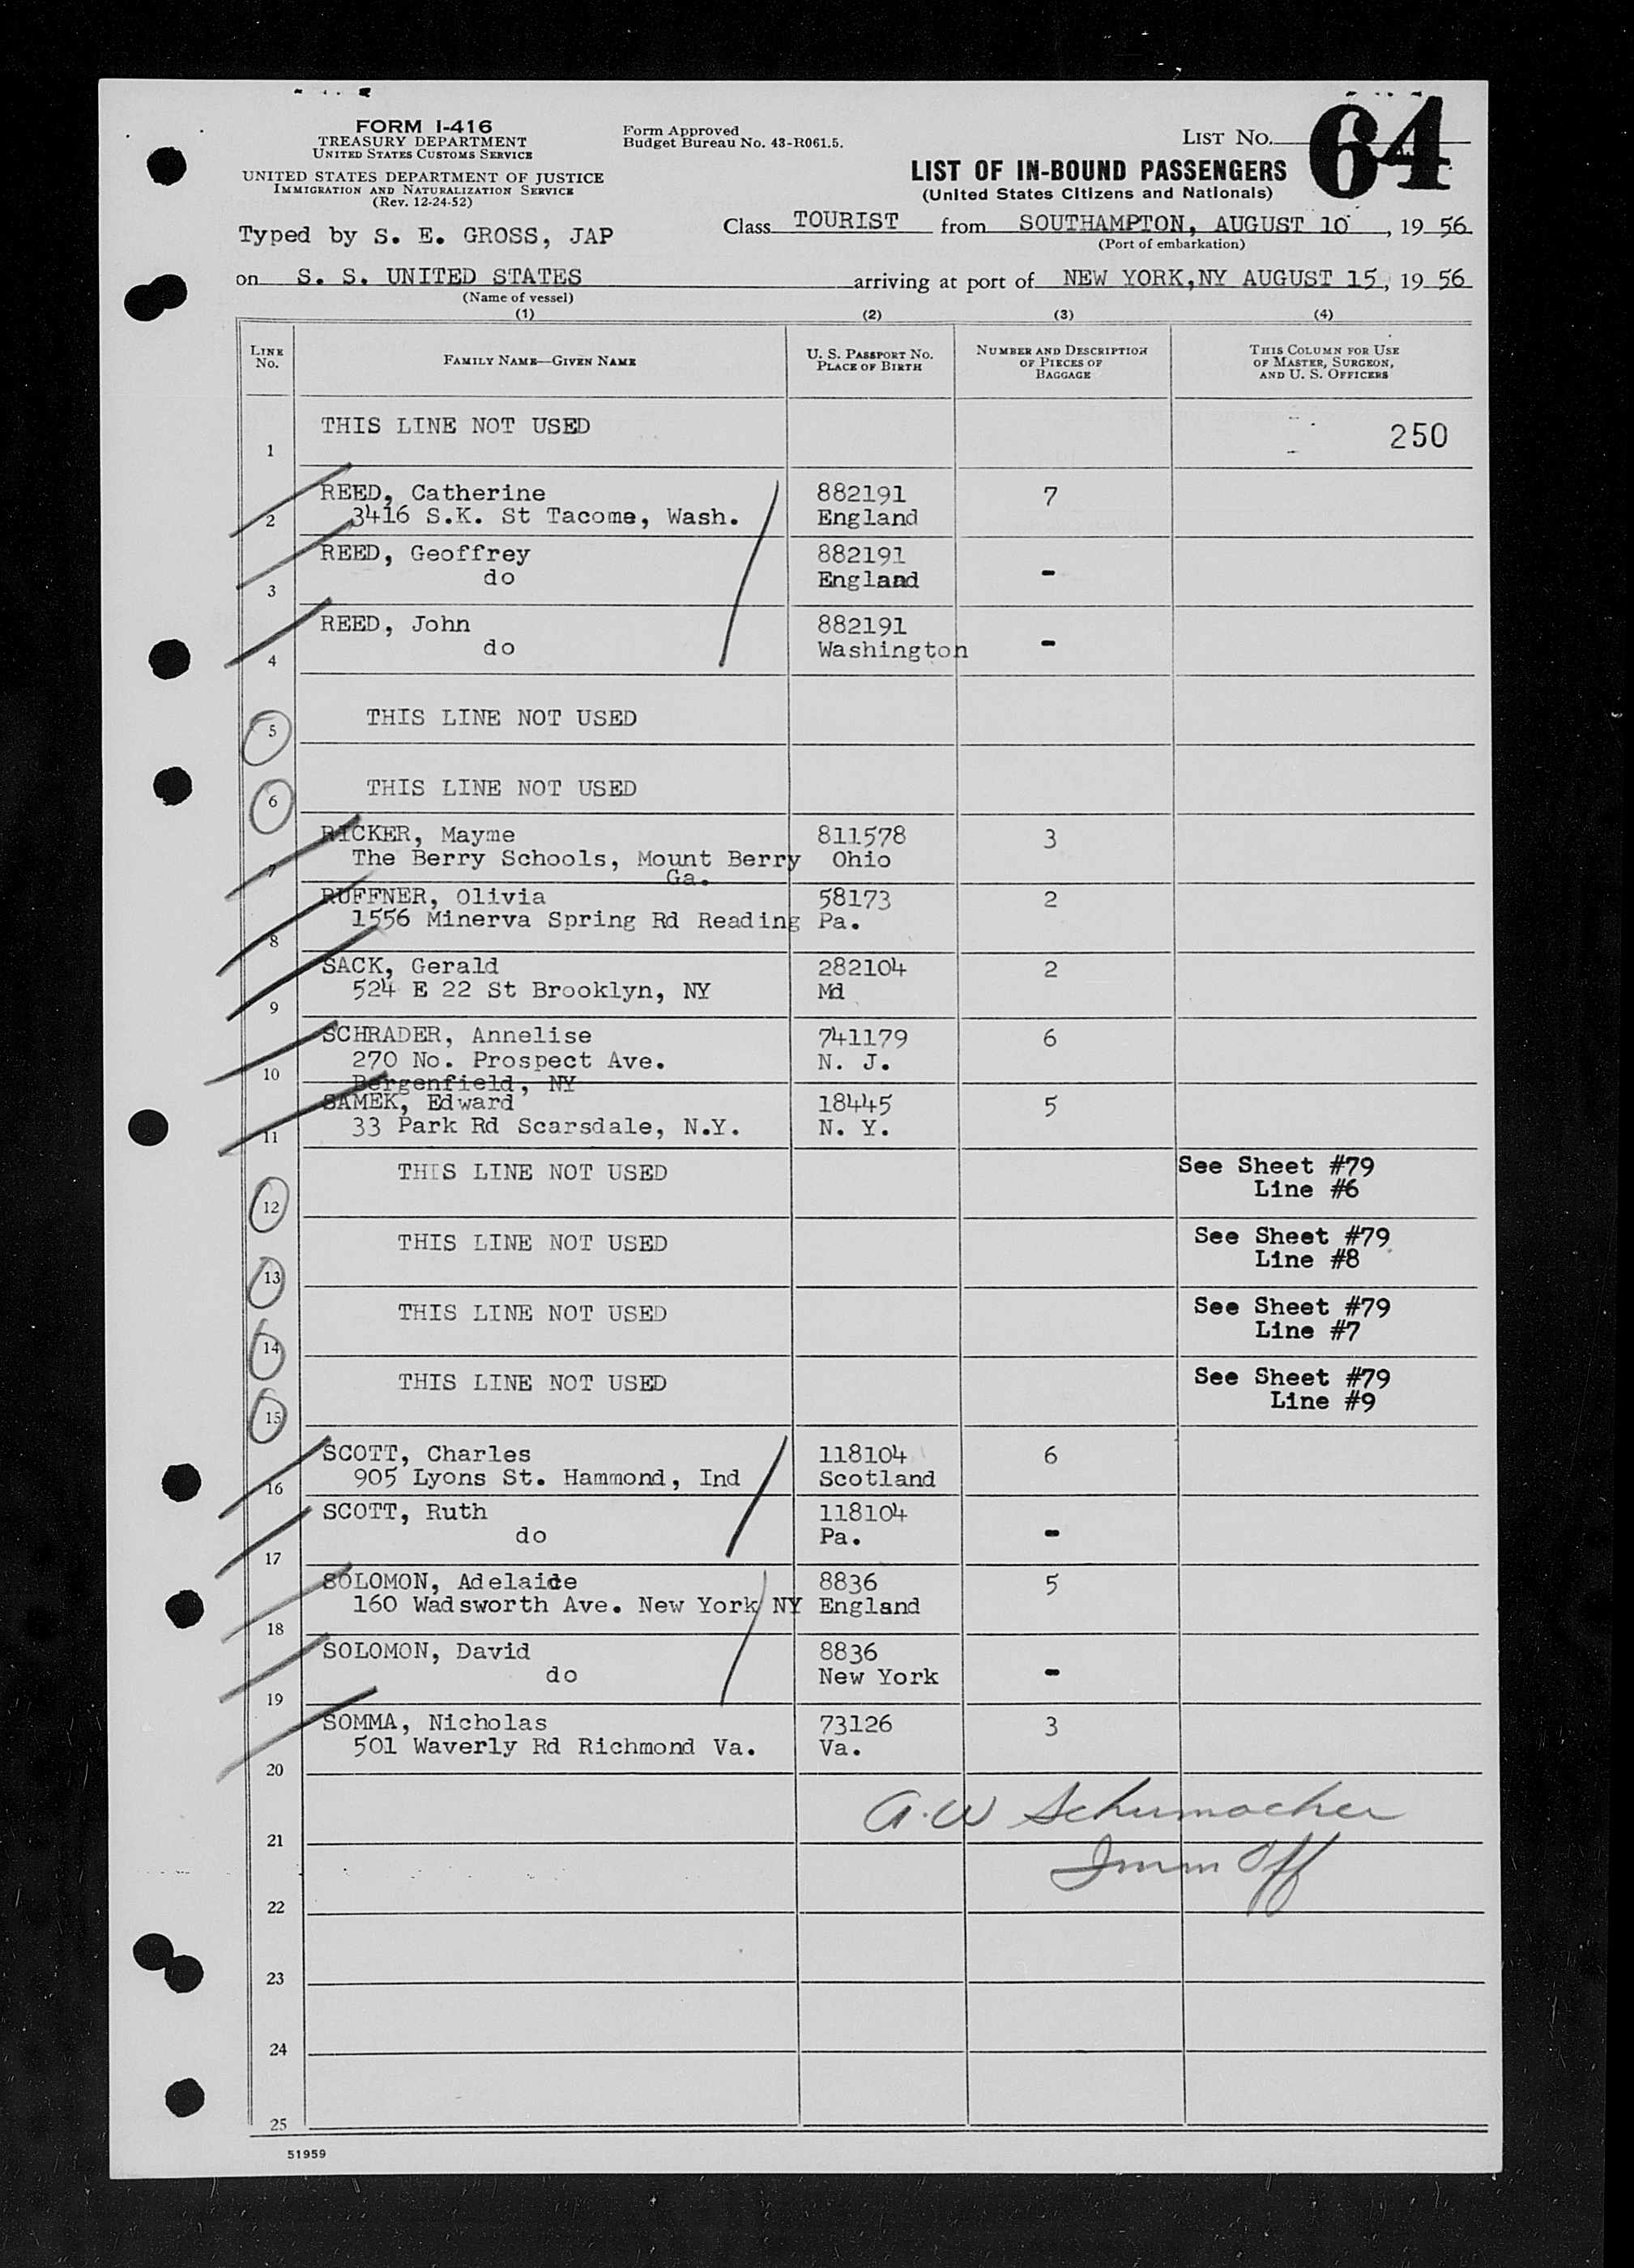 FORM I-416
TREASURY DEPARTMENT
UNITED STATES CUSTOMS SERVICE
UNITED STATES DEPARTMENT OF JUSTICE
IMMIGRATION AND NATURALIZATION SERVICE
(Rev. 12-24-52)
Form Approved
Budget Bureau No. 43-R061.5.
LIST NO. 64
LIST OF IN-BOUND PASSENGERS
(United States Citizens and Nationals)
Typed by S. E. GROSS, JAP
Class TOURIST from SOUTHAMPTON, AUGUST 10, 19 56
(Port of embarkation)
on S. S. UNITED STATES arriving at port of NEW YORK,NY AUGUST 15, 19 56
(Name of vessel)
(1) (2) (3) (4)
LINE No.
FAMILY NAME—GIVEN NAME
U. S. PASSPORT NO.
PLACE OF BIRTH
NUMBER AND DESCRIPTION
OF PIECES OF
BAGGAGE
THIS COLUMN FOR USE
OF MASTER, SURGEON,
AND U. S. OFFICERS
THIS LINE NOT USED
1 250
REED, Catherine 882191 7
2 3416 S.K. St Tacome, Wash. England
REED, Geoffrey 882191 -
3 do England
REED, John 882191 -
4 do Washington
5 THIS LINE NOT USED
6 THIS LINE NOT USED
RICKER, Mayme 811578 3
7 The Berry Schools, Mount Berry Ohio
Ga.
RUFFNER, Olivia 58173 2
8 1556 Minerva Spring Rd Reading Pa.
SACK, Gerald 282104 2
9 524 E 22 St Brooklyn, NY Md
SCHRADER, Annelise 741179 6
10 270 No. Prospect Ave. N. J.
Bergenfield, NY
SAMEK, Edward 18445 5
11 33 Park Rd Scarsdale, N.Y. N. Y.
12 THIS LINE NOT USED See Sheet #79
Line #6
13 THIS LINE NOT USED See Sheet #79
Line #8
14 THIS LINE NOT USED See Sheet #79
Line #7
15 THIS LINE NOT USED See Sheet #79
Line #9
SCOTT, Charles 118104 6
16 905 Lyons St. Hammond, Ind Scotland
SCOTT, Ruth 118104 -
17 do Pa.
SOLOMON, Adelaide 8836 5
18 160 Wadsworth Ave. New York NY England
SOLOMON, David 8836 -
19 do New York
SOMMA, Nicholas 73126 3
20 501 Waverly Rd Richmond Va. Va.
A.W Schumacher
21
Imm Off
22
23
24
25
51959